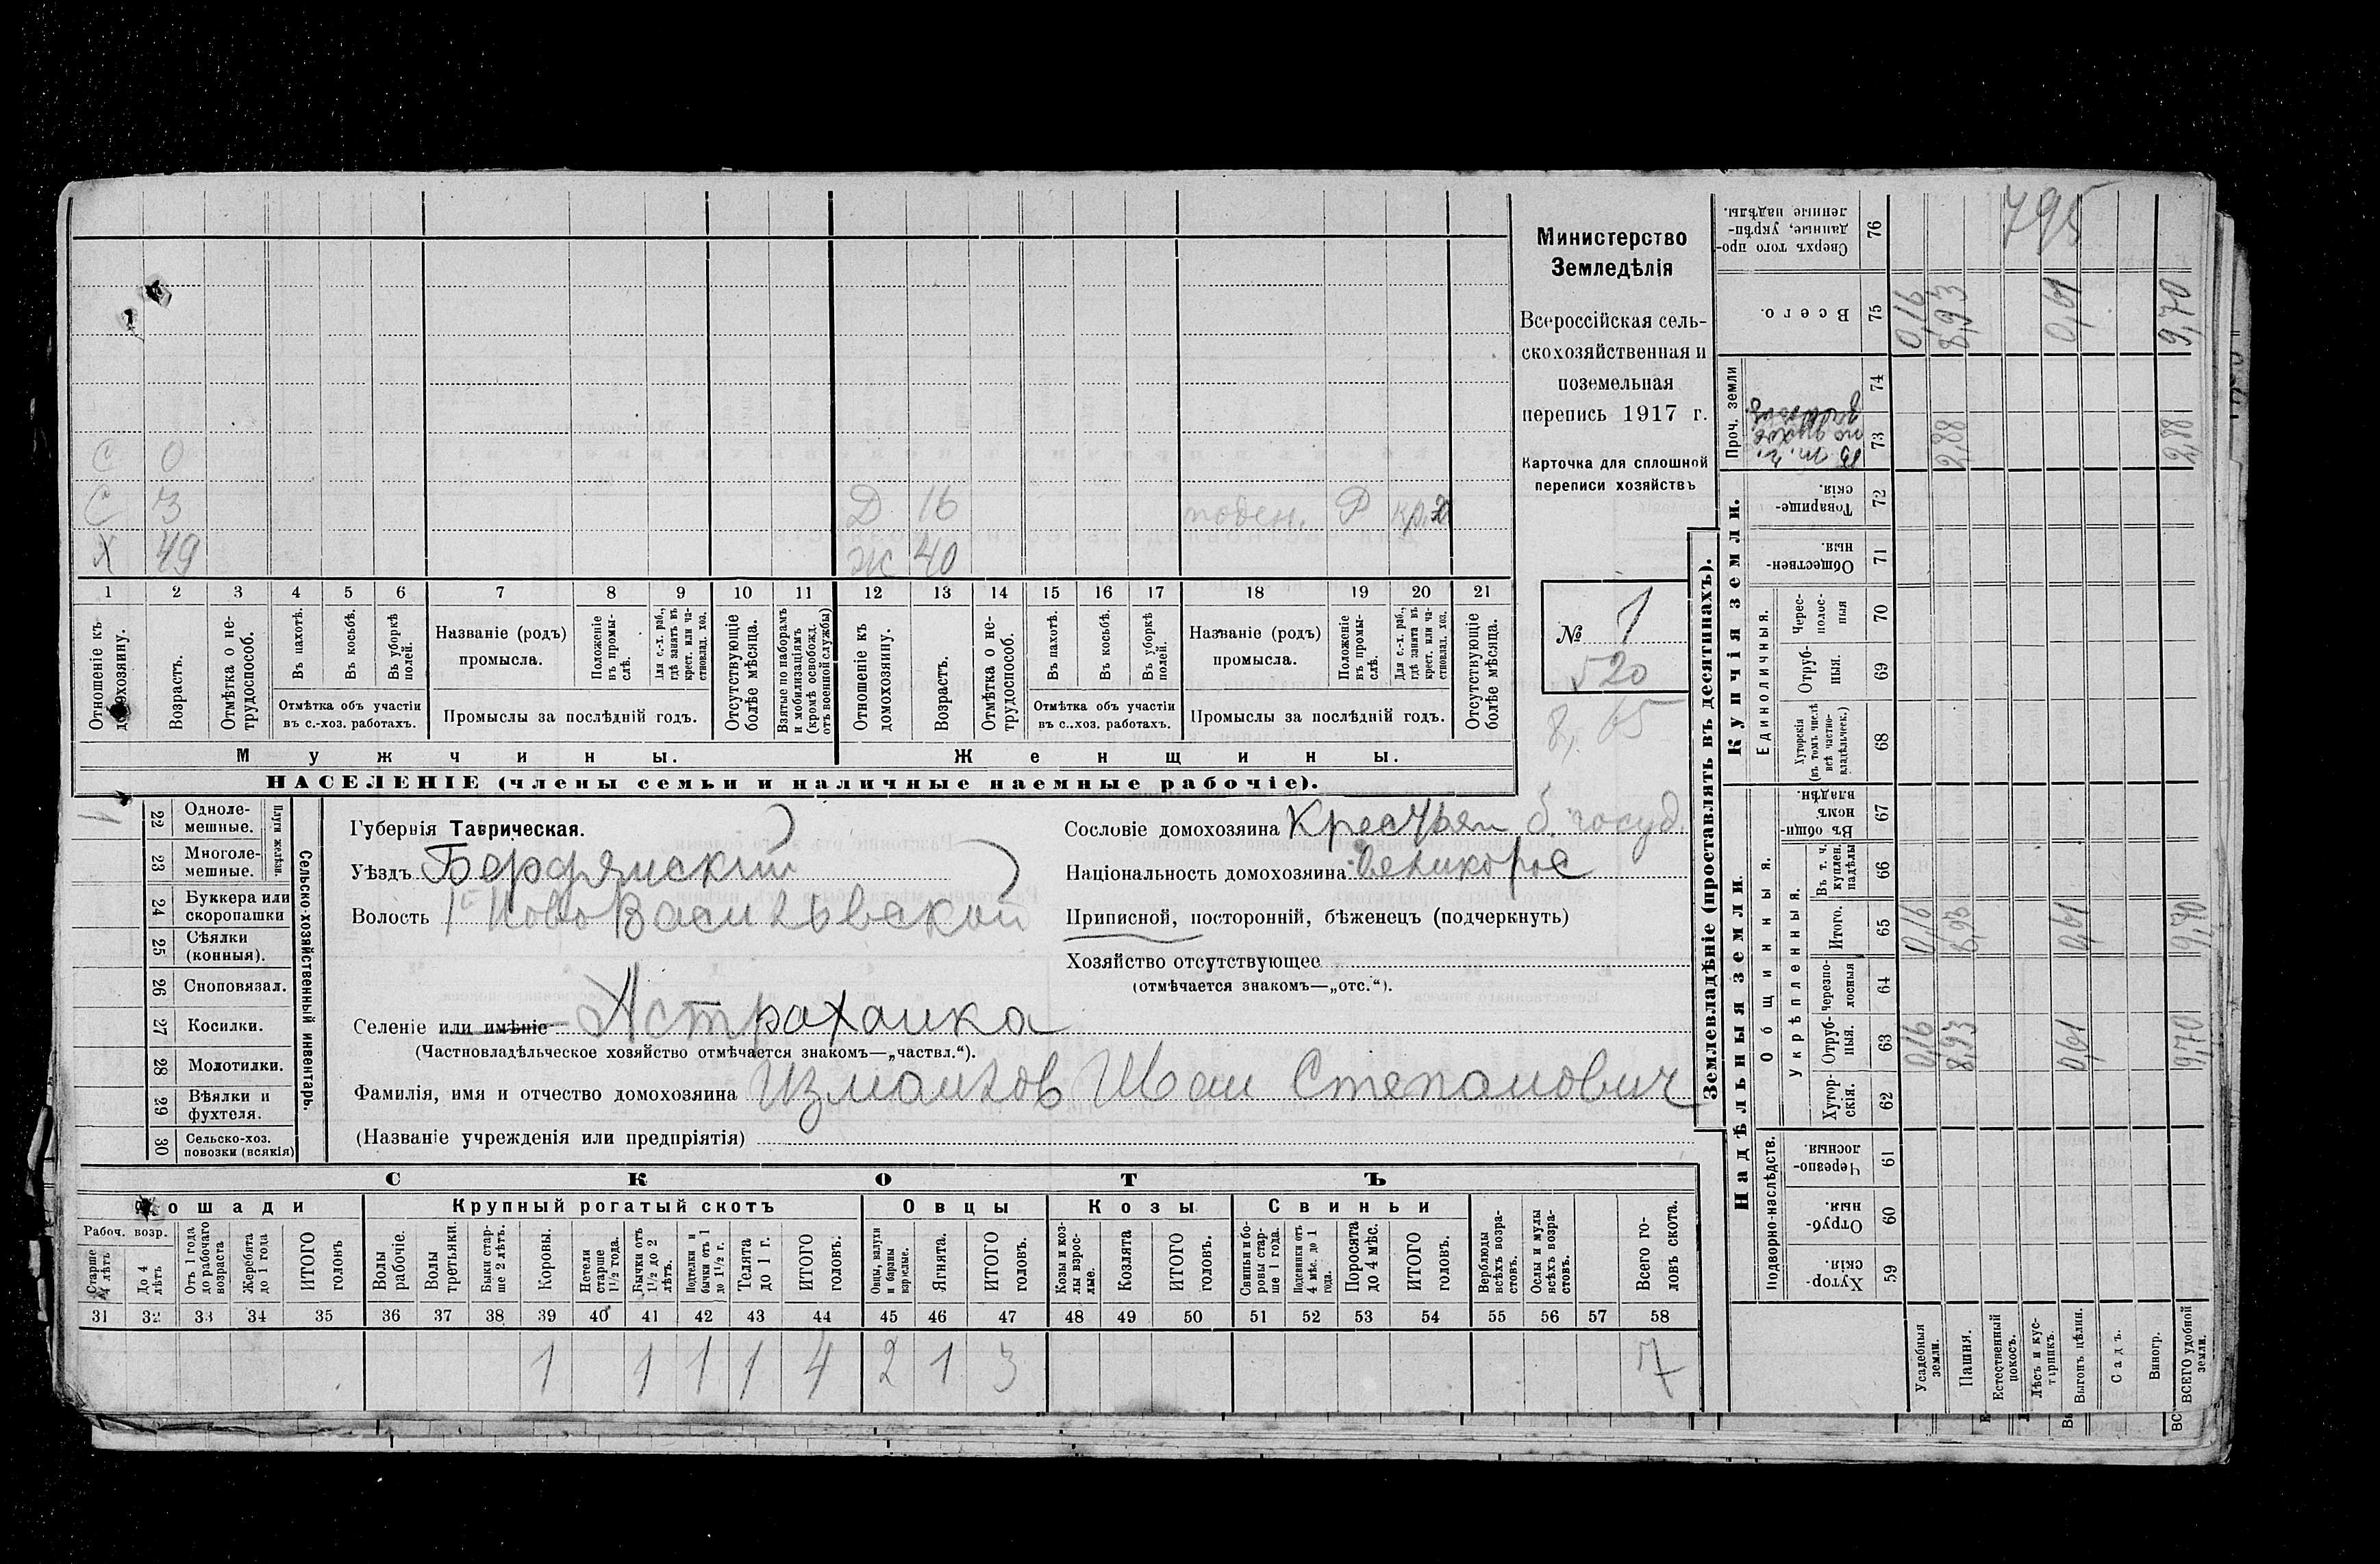 С 0
С 3 Д 16 поден. Р кр.
Х 49 Ж 40
1 2 3 4 5 6 7 8 9 10 11 12 13 14 15 16 17 18 19 20 21
Отношеніе къ домохозяину.
Возрастъ.
Отмѣтка о не-
трудоспособ.
Въ пахотѣ.
Въ косьбѣ.
Въ уборкѣ
полей.
Отмѣтка объ участіи
въ с.-хоз. работахъ.
Названіе (родъ)
промысла.
Положеніе
въ промы-
слѣ.
Для с.-х. раб.,
гдѣ занятъ въ
крест. или ча-
стновлад. хоз.
Промыслы за послѣдній годъ.
Отсутствующіе
болѣе мѣсяца.
Взятые по наборамъ
и мобилизаціямъ
(кромѣ освобожд.
отъ военной службы)
Отношеніе къ
домохозяину.
Возрастъ.
Отмѣтка о не-
трудоспособ.
Въ пахотѣ.
Въ косьбѣ.
Въ уборкѣ
полей.
Отмѣтка объ участіи
въ с..хоз. работахъ.
Названіе (родъ)
промысла.
Положеніе
въ промы-
слѣ.
Для с.-х. раб.,
гдѣ занята въ
крест. или ча-
стновлад. хоз.
Промыслы за послѣдній годъ.
Отсутствующіе
болѣе мѣсяца.
Мужчины.
Женщины.
НАСЕЛЕНІЕ (члены семьи и наличные наемные рабочіе).
Министерство
Земледѣлія
Всероссійская сель-
скохозяйственная и
поземельная
перепись 1917 г.
Карточка для сплошной
переписи хозяйствъ
№ 1
520
8, 65
1
22 Одноле-
мешные.
23 Многоле-
мешные.
Плуги желѣзн.
24 Буккера или
скоропашки
25 Сѣялки
(конныя).
26 Сноповязал.
27 Косилки.
28 Молотилки.
29 Вѣялки и
фухтеля.
30 Сельско-хоз.
повозки (всякія)
Сельско-хозяйственный инвентарь.
Губернія Таврическая.
Уѣздъ Бердянский
Волость 1я Ново Васильевской
Селеніе или имѣніе Астраханка
(Частновладѣльческое хозяйство отмѣчается знакомъ—„частвл.“).
Фамилія, имя и отчество домохозяина Измайлов Иван Степанович
(Названіе учрежденія или предпріятія)
Сословіе домохозяина Крестьян б. госуд.
Національность домохозяина великорос
Приписной, посторонній, бѣженецъ (подчеркнуть)
Хозяйство отсутствующее
(отмѣчается знакомъ—„отс.“).
СКОТЪ
Лошади
Крупный рогатый скотъ
Овцы
Козы
Свиньи
Рабоч. возр.
Старше
4 лѣтъ
До 4
лѣтъ
Отъ 1 года
до рабочаго
возраста
Жеребята
до 1 года
ИТОГО
головъ
Волы
рабочіе.
Волы
третьяки.
Быки стар-
ше 2 лѣтъ.
Коровы.
Нетели
старше
1½ года.
Бычки отъ
1½ до 2
лѣтъ.
Подтелки и
бычки отъ 1
до 1½ г.
Телята
до 1 г.
ИТОГО
головъ.
Овцы, валухи
и бараны
взрослые.
Ягнята.
ИТОГО
головъ.
Козы и коз-
лы взрос-
лые.
Козлята
ИТОГО
головъ.
Свиньи и бо-
ровы стар-
ше 1 года.
Подсвинки отъ
4 мѣс. до 1
года.
Поросята
до 4 мѣс.
ИТОГО
головъ.
Верблюды
всѣхъ возра-
стовъ.
Ослы и мулы
всѣхъ возра-
стовъ.
Всего го-
ловъ скота.
31 32 33 34 35 36 37 38 39 40 41 42 43 44 45 46 47 48 49 50 51 52 53 54 55 56 57 58
1 1 1 1 4 2 1 3 7
Землевладѣніе (проставлять въ десятинахъ).
Надѣльныя земли
Купчія земли.
Проч. земли
Подворно-наслѣдств.
Общинныя.
Укрѣпленныя.
Единоличныя.
Хутор-
скія. 59
Отруб-
ныя. 60
Черезпо-
лосныя. 61
Хутор-
скія. 62
Отруб-
ныя. 63
Черезпо-
лосныя 64
Итого. 65
Въ т. ч.
куплен.
надѣлы 66
Въ общи-
номъ
владѣн. 67
Хуторскія
(въ томъ числѣ
всѣ частно-
владѣльческ.) 68
Отруб-
ныя. 69
Черес-
полос-
ныя 70
Обществен-
ныя. 71
Товарище-
скія. 72
73
74
Всего. 75
Сверхъ того про-
данные, укрѣп-
ленные надѣлы. 76
Усадебныя
земли. 0,16 0,16 0,16
Пашня. 8,93 8,93 2,88 8,93
Естественный
покосъ.
Лѣсъ и кус-
тарникъ.
Выгонъ цѣлин. 0,61 0,61 0,61
Садъ.
Виногр.
ВСЕГО удобной
земли. 9,70 9,70 2,88 9,70
795